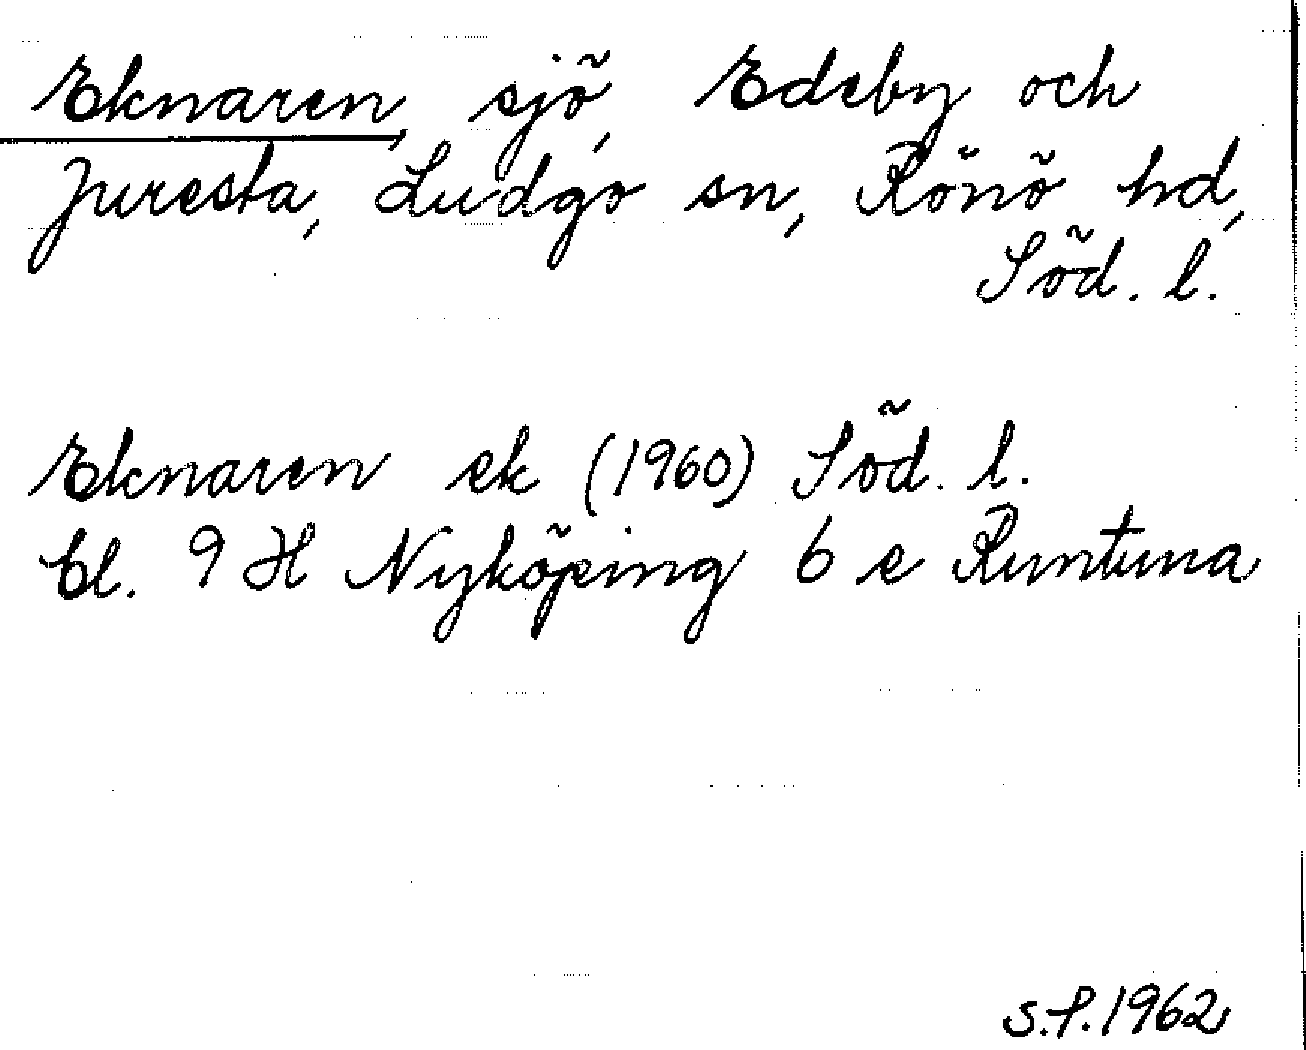 Eknaren, sjö, Edeby och
Juresta, Ludgo sn, Rönö hd,
Söd. l.
Eknaren ek (1960) Söd. l.
bl. 9 H Nyköping 6 e Runtuna
S.P.1962